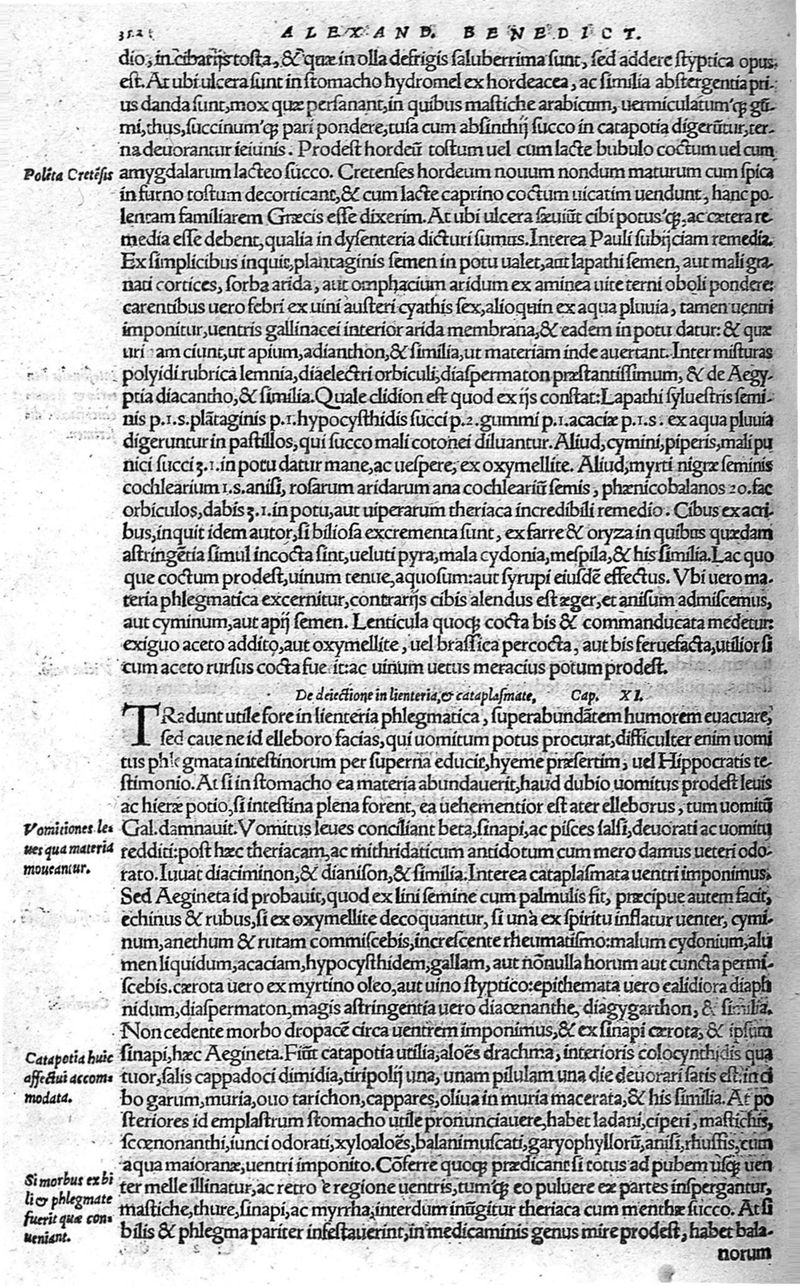 ALEXAND. BENEDICT.
dio, in cibarijs tosta, & quæ in olla defrigis saluberrima sunt, sed addere styptica opus
est. At ubi ulcera sunt in stomacho hydromel ex hordeacea, ac similia abstergentia pri-
us danda sunt, mox quæ persanant, in quibus mastiche arabicum, uermiculatum'q; gũ-
mi, thus, succinum'q; pari pondere, tusa cum absinthij succo in catapotia digerũtur, ter-
na deuorantur ieiunis. Prodest hordeũ tostum uel cum lacte bubulo coctum uel cum
Polẽta Cretẽsis
amygdalarum lacteo succo. Cretenses hordeum nouum nondum maturum cum spica
in furno tostum decorticant, & cum lacte caprino coctum uicatim uendunt, hanc po-
lentam familiarem Græcis esse dixerim. At ubi ulcera sæuiũt cibi potus'q;, ac cætera re-
media esse debent, qualia in dysenteria dicturi sumus. Interea Pauli subijciam remedia.
Ex simplicibus inquit, plantaginis semen in potu ualet, aut lapathi semen, aut mali gra-
nati cortices, sorba arida, aut omphacium aridum ex aminea uite terni oboli pondere:
carentibus uero febri ex uini austeri cyathis sex, alioquin ex aqua pluuia, tamen uentri
imponitur, uentris gallinacei interior arida membrana, & eadem in potu datur: & quæ
uri am ciunt, ut apium, adianthon, & similia, ut materiam inde auertant. Inter misturas
polyidi rubrica lemnia, diaelectri orbiculi, diaspermaton præstantissimum, & de Aegy-
ptia diacantho, & similia. Quale clidion est quod ex ijs constat: Lapathi syluestris semi-
nis p.1.s. plãtaginis p.1. hypocysthidis succi p.2. gummi p.1. acaciæ p.1.s. ex aqua pluuia
digeruntur in pastillos, qui succo mali cotonei diluantur. Aliud, cymini, piperis, mali pu
nici succi ʒ.1. in potu datur mane, ac uespere, ex oxymellite. Aliud, myrti nigræ seminis
cochlearium 1.s. anisi, rosarum aridarum ana cochleariũ semis, phœnicobalanos 20. fac
orbiculos, dabis ʒ.1. in potu, aut uiperarum theriaca incredibili remedio. Cibus ex acri-
bus, inquit idem autor, si biliosa excrementa sunt, ex farre & oryza in quibus quædam
astringẽtia simul incocta sint, ueluti pyra, mala cydonia, mespila, & his similia. Lac quo
que coctum prodest, uinum tenue, aquosum: aut syrupi eiusdẽ effectus. Vbi uero ma-
teria phlegmatica excernitur, contrarijs cibis alendus est æger, et anisum admiscemus,
aut cyminum, aut apij semen. Lenticula quoq; cocta bis & commanducata medetur:
exiguo aceto addito, aut oxymellite, uel brassica percocta, aut bis feruefacta, utilior si
cum aceto rursus cocta fue it: ac uinum uetus meracius potum prodest.
De deiectione in lienteria, & cataplasmate, Cap. XI.
TRadunt utile fore in lienteria phlegmatica, superabundãtem humorem euacuare,
sed caue ne id elleboro facias, qui uomitum potus procurat, difficulter enim uomi
tus phlegmata intestinorum per superna educit, hyeme præsertim, uel Hippocratis te-
stimonio. At si in stomacho ea materia abundauerit, haud dubio uomitus prodest leuis
ac hieræ potio, si intestina plena forent, ea uehementior est ater elleborus, tum uomitũ
Vomitiones le-
ues qua materia
moueantur.
Gal. damnauit. Vomitus leues conciliant beta, sinapi, ac pisces salsi, deuorati ac uomitu
redditi: post hæc theriacam, ac mithridaticum antidotum cum mero damus ueteri odo-
rato. Iuuat diaciminon, & dianison, & similia. Interea cataplasmata uentri imponimus.
Sed Aegineta id probauit, quod ex lini semine cum palmulis fit, præcipue autem facit,
echinus & rubus, si ex oxymellite decoquantur, si unà ex spiritu inflatur uenter, cymi-
num, anethum & rutam commiscebis, increscente rheumatismo: malum cydonium, alu
men liquidum, acaciam, hypocysthidem, gallam, aut nõnulla horum aut cuncta permi-
scebis. cærota uero ex myrtino oleo, aut uino styptico: epithemata uero calidiora diaph
nidum, diaspermaton, magis astringentia uero diaœnanthe, diagygarthon, & similia.
Non cedente morbo dropacẽ circa uentrem imponimus, & ex sinapi cærota, & ipsum
Catapotia huic
affectui accom-
modata.
sinapi, hæc Aegineta. Fiũt catapotia utilia, aloẽs drachma, interioris colocynthidis qua
tuor, salis cappadoci dimidia, tiripolij una, unam pilulam una die deuorari satis est: in ci
bo garum, muria, ouo tarichon, cappares, oliua in muria macerata, & his similia. At po
steriores id emplastrum stomacho utile pronunciauere, habet ladani, ciperi, mastichis,
scœnonanthi, iunci odorati, xyloaloẽs, balanimuscati, garyophyllorũ, anisi, rhussis, cum
aqua maioranæ, uentri imponito. Cõferre quoq; prædicant si totus ad pubem usq; uen
Si morbus ex bi
li & phlegmate
fuerit quæ con-
ueniant.
ter melle illinatur, ac retro è regione uentris, tum'q; eo puluere eæ partes inspergantur,
mastiche, thure, sinapi, ac myrrha, interdum inũgitur theriaca cum menthæ succo. At si
bilis & phlegma pariter infestauerint, in medicaminis genus mire prodest, habet bala-
norum